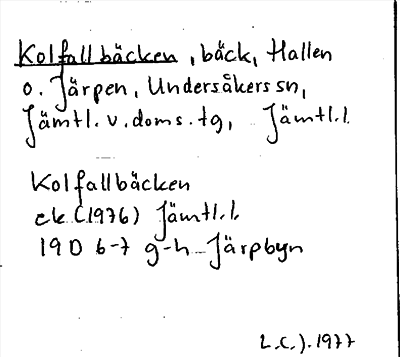 Kolfallbäcken, bäck, Hallen
o. Järpen, Undersåkers sn,
Jämtl. v. doms. tg, Jämtl. l.
Kolfallbäcken
ek (1976) Jämtl. l.
19D 6-7 g-h Järpbyn
L.C.J. 1977